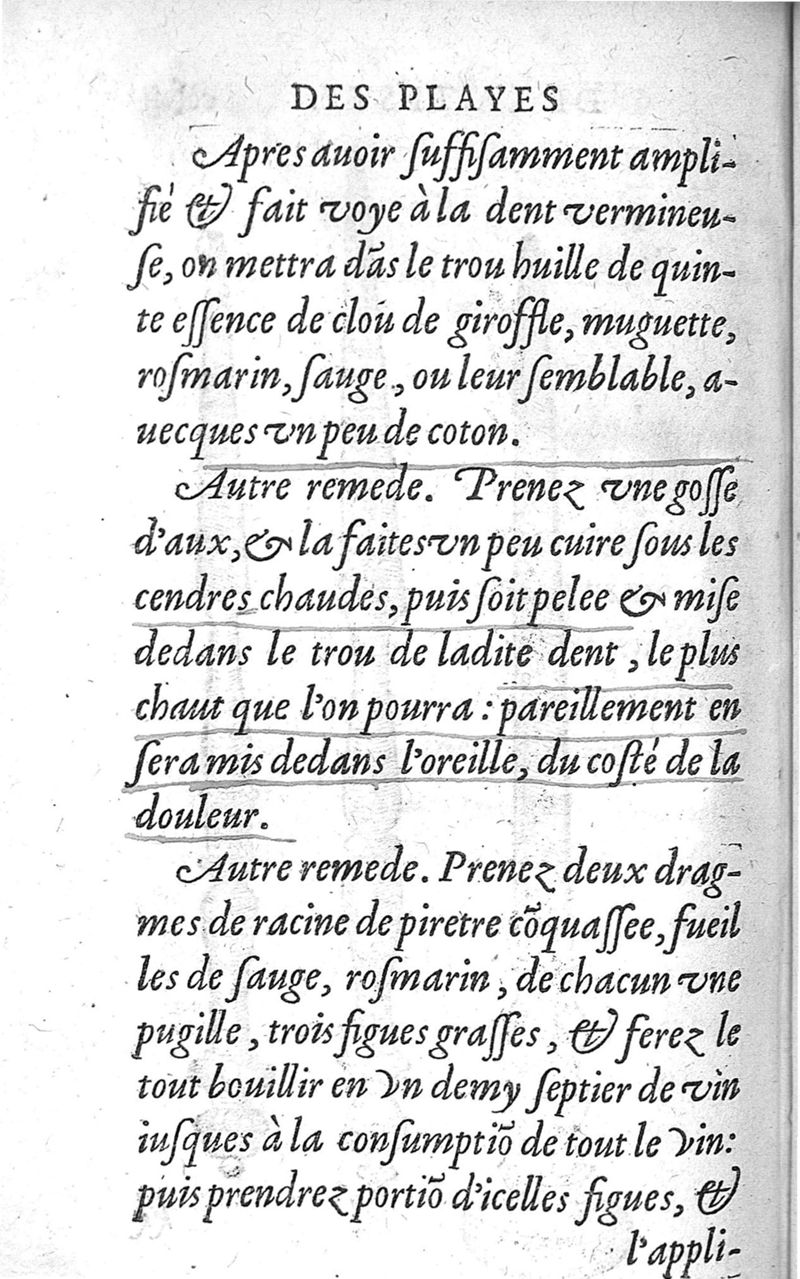 DES PLAYES
Apres auoir ſuffiſamment ampli-
fié & fait voye à la dent vermineu-
ſe, on mettra dãs le trou huille de quin-
te eſſence de clou de giroffle, muguette,
roſmarin, ſauge, ou leur ſemblable, a-
uecques vn peu de coton.
Autre remede. Prenez vne goſſe
d'aux, & la faites vn peu cuire ſous les
cendres chaudes, puis ſoit pelee & miſe
dedans le trou de ladite dent, le plus
chaut que l'on pourra : pareillement en
ſera mis dedans l'oreille, du coſté de la
douleur.
Autre remede. Prenez deux drag-
mes de racine de piretre cõquaſſee, fueil
les de ſauge, roſmarin, de chacun vne
pugille, trois figues graſſes, & ferez le
tout bouillir en vn demy ſeptier de vin
iuſques à la conſumptiõ de tout le vin:
puis prendrez portiõ d'icelles figues, &
l'appli-